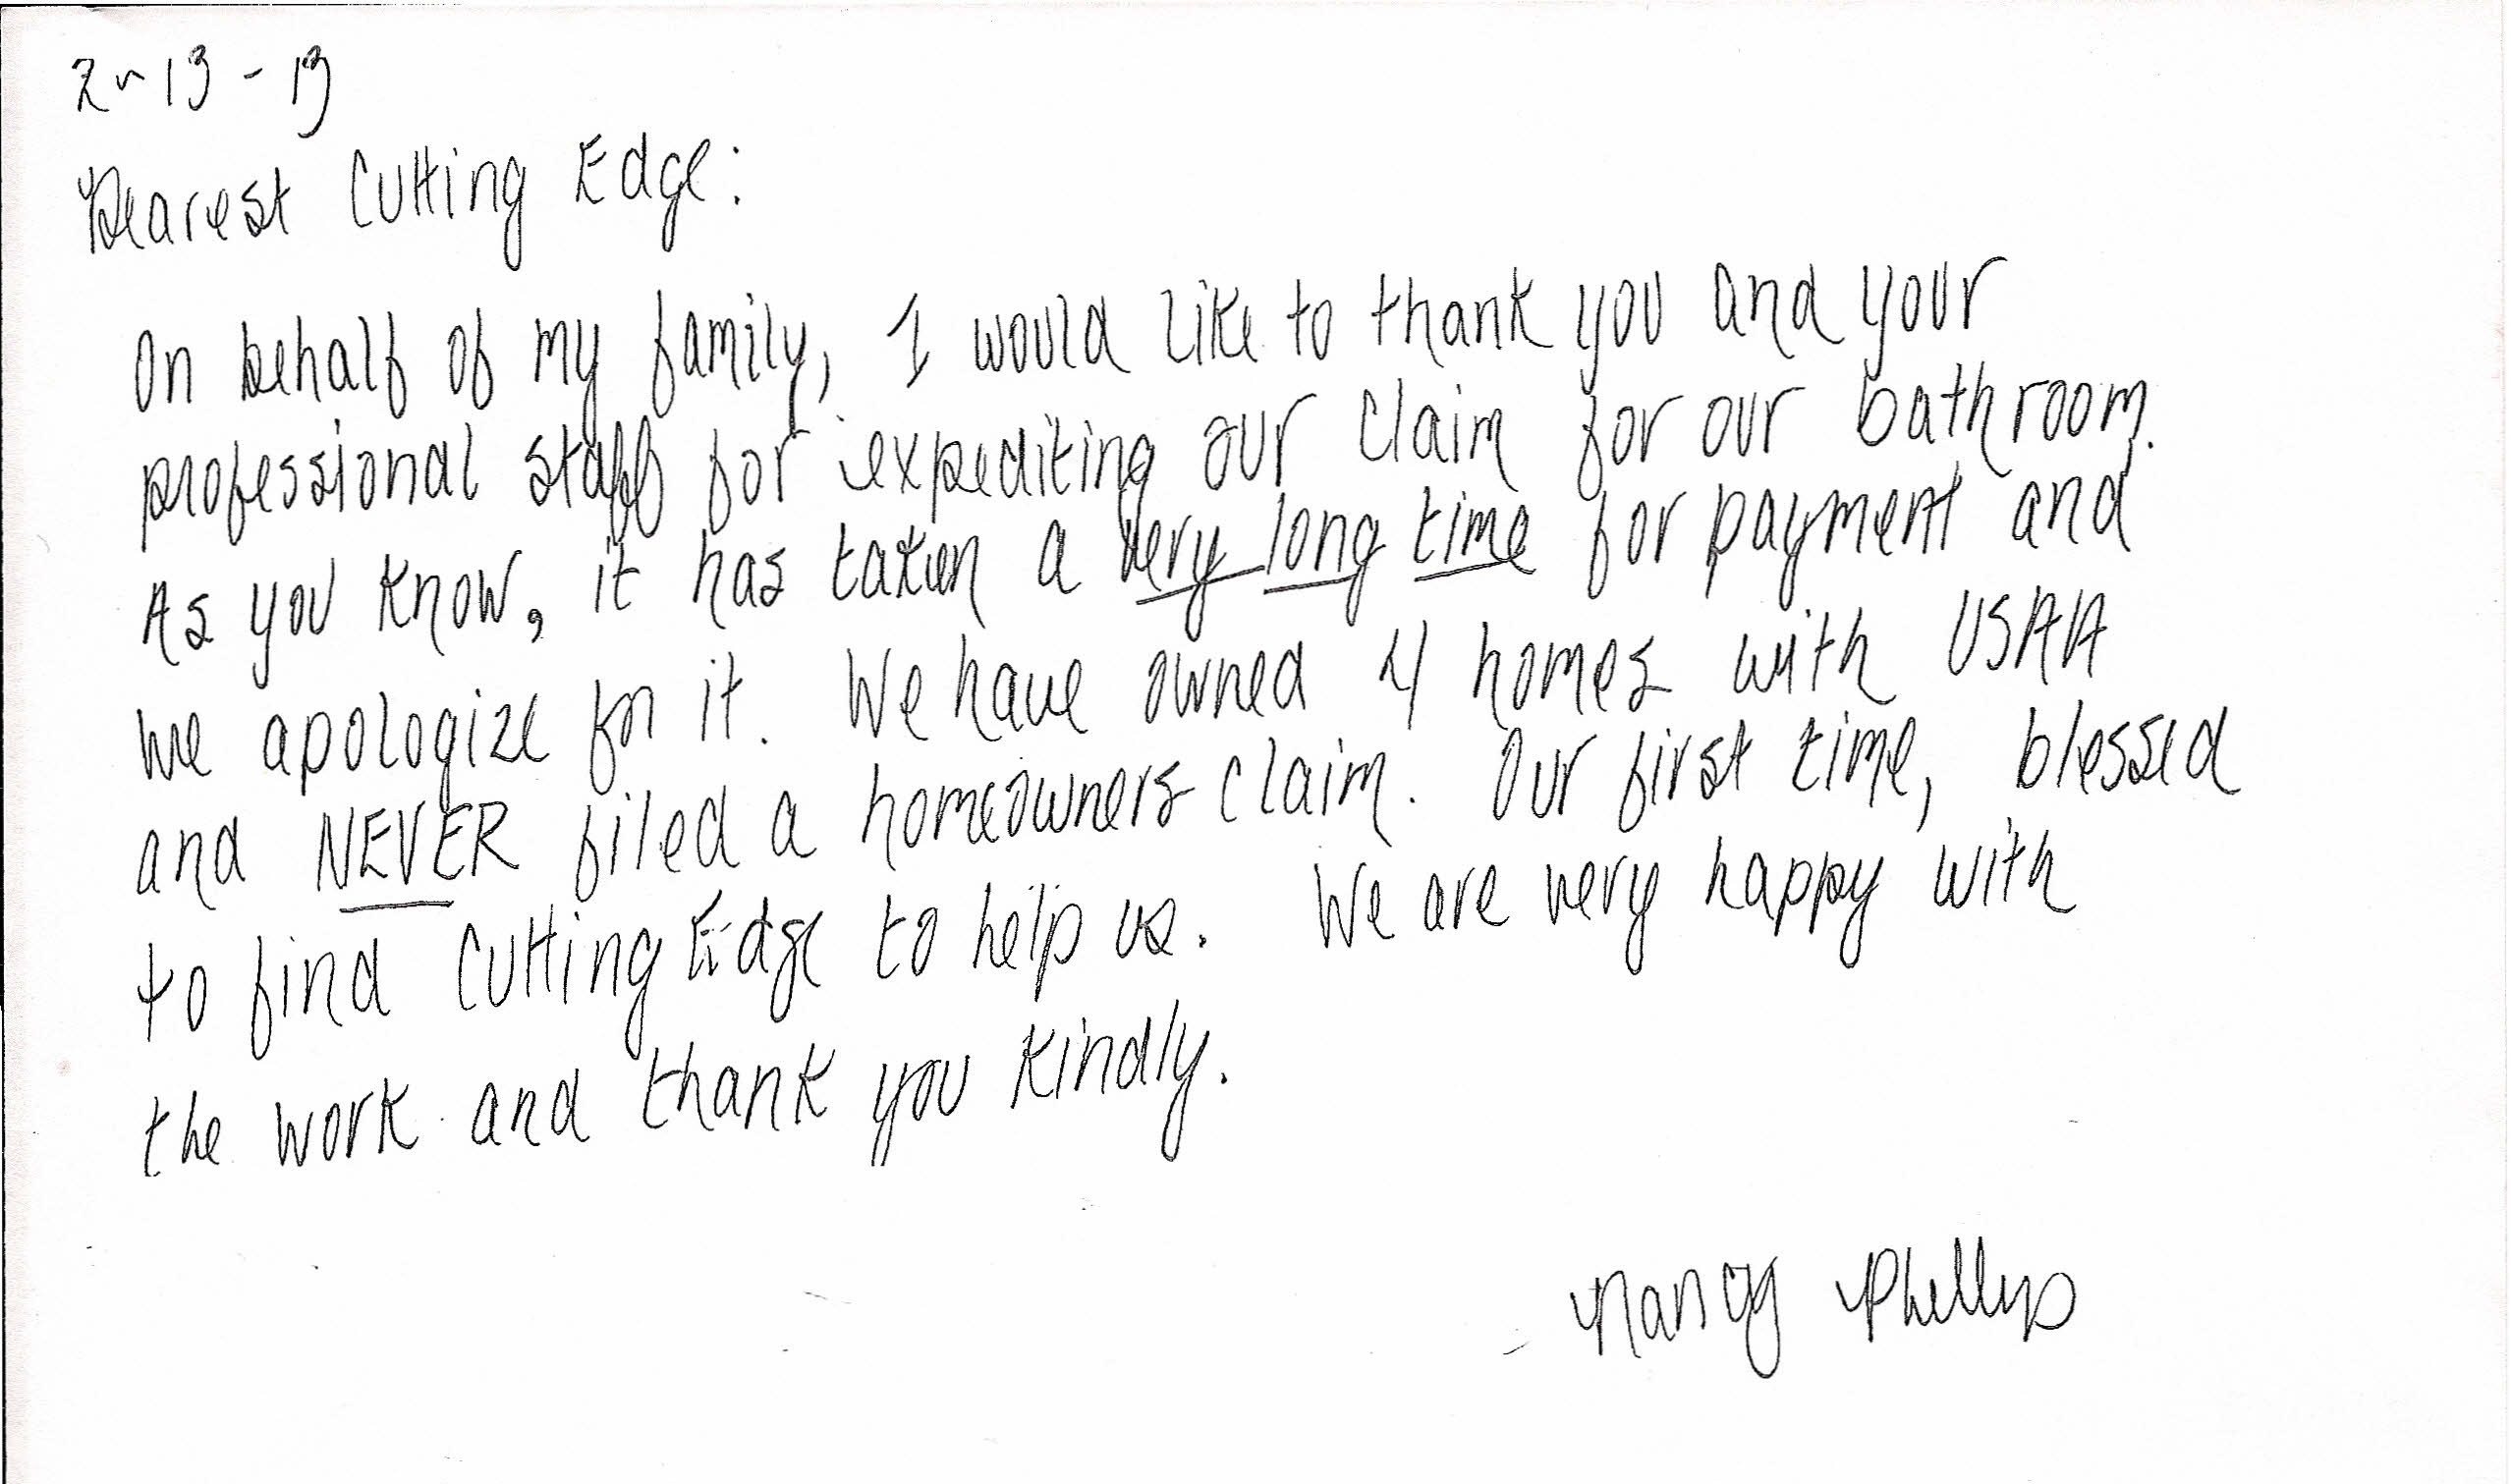 2-19-19
Dearest Cutting Edge:
On behalf of my family, I would like to thank you and your
professional staff for expediting our claim for our bathroom.
As you know, it has taken a very long time for payment and
we apologize for it. We have owned 4 homes with USAA
and NEVER filed a homeowners claim. Our first time, blessed
to find Cutting Edge to help us. We are very happy with
the work and thank you kindly.
Nancy Phillips